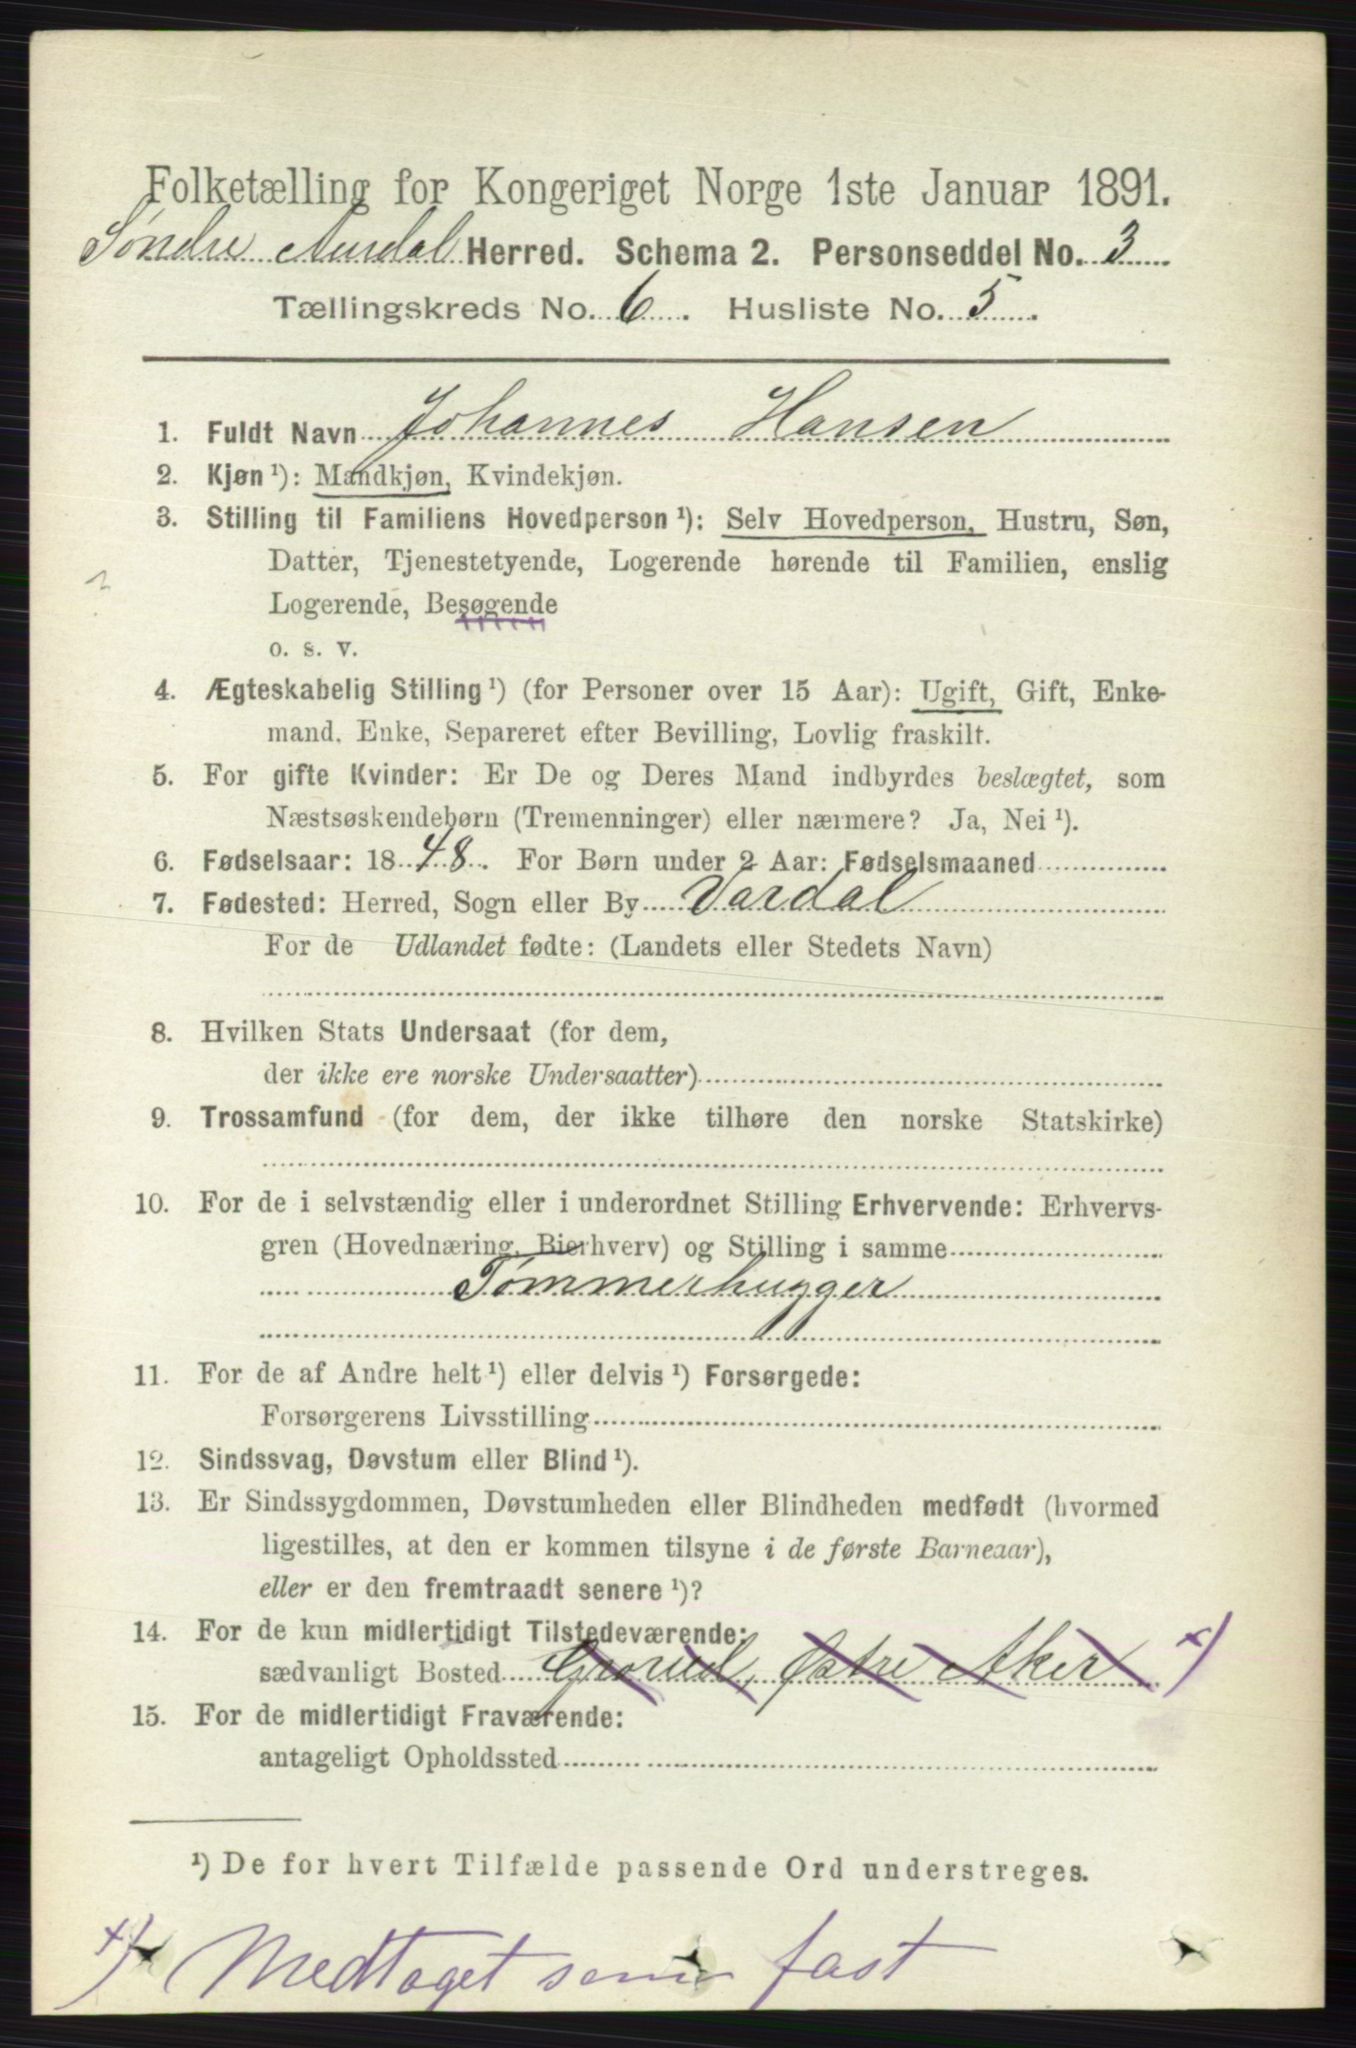 Folketælling for Kongeriget Norge 1ste Januar 1891.
Søndre Aurdal Herred. Schema 2. Personseddel No. 3
Tællingskreds No. 6. Husliste No. 5.
1. Fuldt Navn Johannes Hansen
2. Kjøn ¹): Mandkjøn, Kvindekjøn.
3. Stilling til Familiens Hovedperson ¹): Selv Hovedperson, Hustru, Søn,
Datter, Tjenestetyende, Logerende hørende til Familien, enslig
Logerende, Besøgende
o. s. v.
4. Ægteskabelig Stilling ¹) (for Personer over 15 Aar): Ugift, Gift, Enke-
mand, Enke, Separeret efter Bevilling, Lovlig fraskilt.
5. For gifte Kvinder: Er De og Deres Mand indbyrdes beslægtet, som
Næstsøskendebørn (Tremenninger) eller nærmere? Ja, Nei ¹).
6. Fødselsaar: 1848. For Børn under 2 Aar: Fødselsmaaned
7. Fødested: Herred, Sogn eller By Vardal
For de Udlandet fødte: (Landets eller Stedets Navn)
8. Hvilken Stats Undersaat (for dem,
der ikke ere norske Undersaatter)
9. Trossamfund (for dem, der ikke tilhøre den norske Statskirke)
10. For de i selvstændig eller i underordnet Stilling Erhvervende: Erhvervs-
gren (Hovednæring, Bierhverv) og Stilling i samme
Tømmerhugger
11. For de af Andre helt ¹) eller delvis ¹) Forsørgede:
Forsørgerens Livsstilling
12. Sindssvag, Døvstum eller Blind ¹).
13. Er Sindssygdommen, Døvstumheden eller Blindheden medfødt (hvormed
ligestilles, at den er kommen tilsyne i de første Barneaar),
eller er den fremtraadt senere ¹)?
14. For de kun midlertidigt Tilstedeværende:
sædvanligt Bosted Grorud, Østre Aker x)
15. For de midlertidigt Fraværende:
antageligt Opholdssted
¹) De for hvert Tilfælde passende Ord understreges.
x) Medtaget som fast